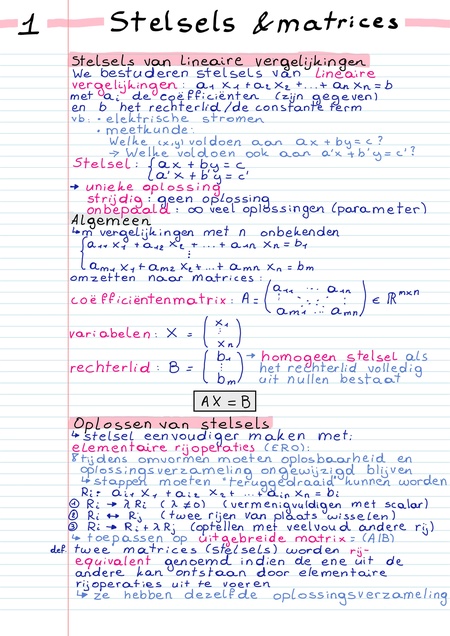 1 Stelsels & matrices
Stelsels van lineaire vergelijkingen
We bestuderen stelsels van lineaire
vergelijkingen : a₁ x₁ + a₂ x₂ + ... + aₙ xₙ = b
met aᵢ de coëfficiënten (zijn gegeven)
en b het rechterlid / de constante term
vb: • elektrische stromen
• meetkunde:
Welke (x,y) voldoen aan ax + by = c ?
→ Welke voldoen ook aan a'x + b'y = c' ?
Stelsel : { ax + by = c
a'x + b'y = c'
→ unieke oplossing
strijdig : geen oplossing
onbepaald : ∞ veel oplossingen (parameter)
Algemeen
↳ m vergelijkingen met n onbekenden
{ a₁₁ x₁ + a₁₂ x₂ + ... + a₁ₙ xₙ = b₁
⋮
aₘ₁ x₁ + aₘ₂ x₂ + ... + aₘₙ xₙ = bₘ
omzetten naar matrices :
coëfficiëntenmatrix : A = ( a₁₁ ... a₁ₙ
⋮ ⋱ ⋮
aₘ₁ ... aₘₙ ) ∈ ℝᵐˣⁿ
variabelen : X = ( x₁
⋮
xₙ )
rechterlid : B = ( b₁
⋮
bₘ ) → homogeen stelsel als
het rechterlid volledig
uit nullen bestaat
AX = B
Oplossen van stelsels
↳ stelsel eenvoudiger maken met:
elementaire rijoperaties (ERO):
tijdens omvormen moeten oplosbaarheid en
oplossingsverzameling ongewijzigd blijven
↳ stappen moeten "teruggedraaid" kunnen worden
Rᵢ = aᵢ₁ x₁ + aᵢ₂ x₂ + ... + aᵢₙ xₙ = bᵢ
① Rᵢ → λ Rᵢ (λ ≠ 0) (vermenigvuldigen met scalar)
② Rᵢ ↔ Rⱼ (twee rijen van plaats wisselen)
③ Rᵢ → Rᵢ + λ Rⱼ (optellen met veelvoud andere rij)
↳ toepassen op uitgebreide matrix = (A|B)
def. twee matrices (stelsels) worden rij-
equivalent genoemd indien de ene uit de
andere kan ontstaan door elementaire
rijoperaties uit te voeren
↳ ze hebben dezelfde oplossingsverzameling